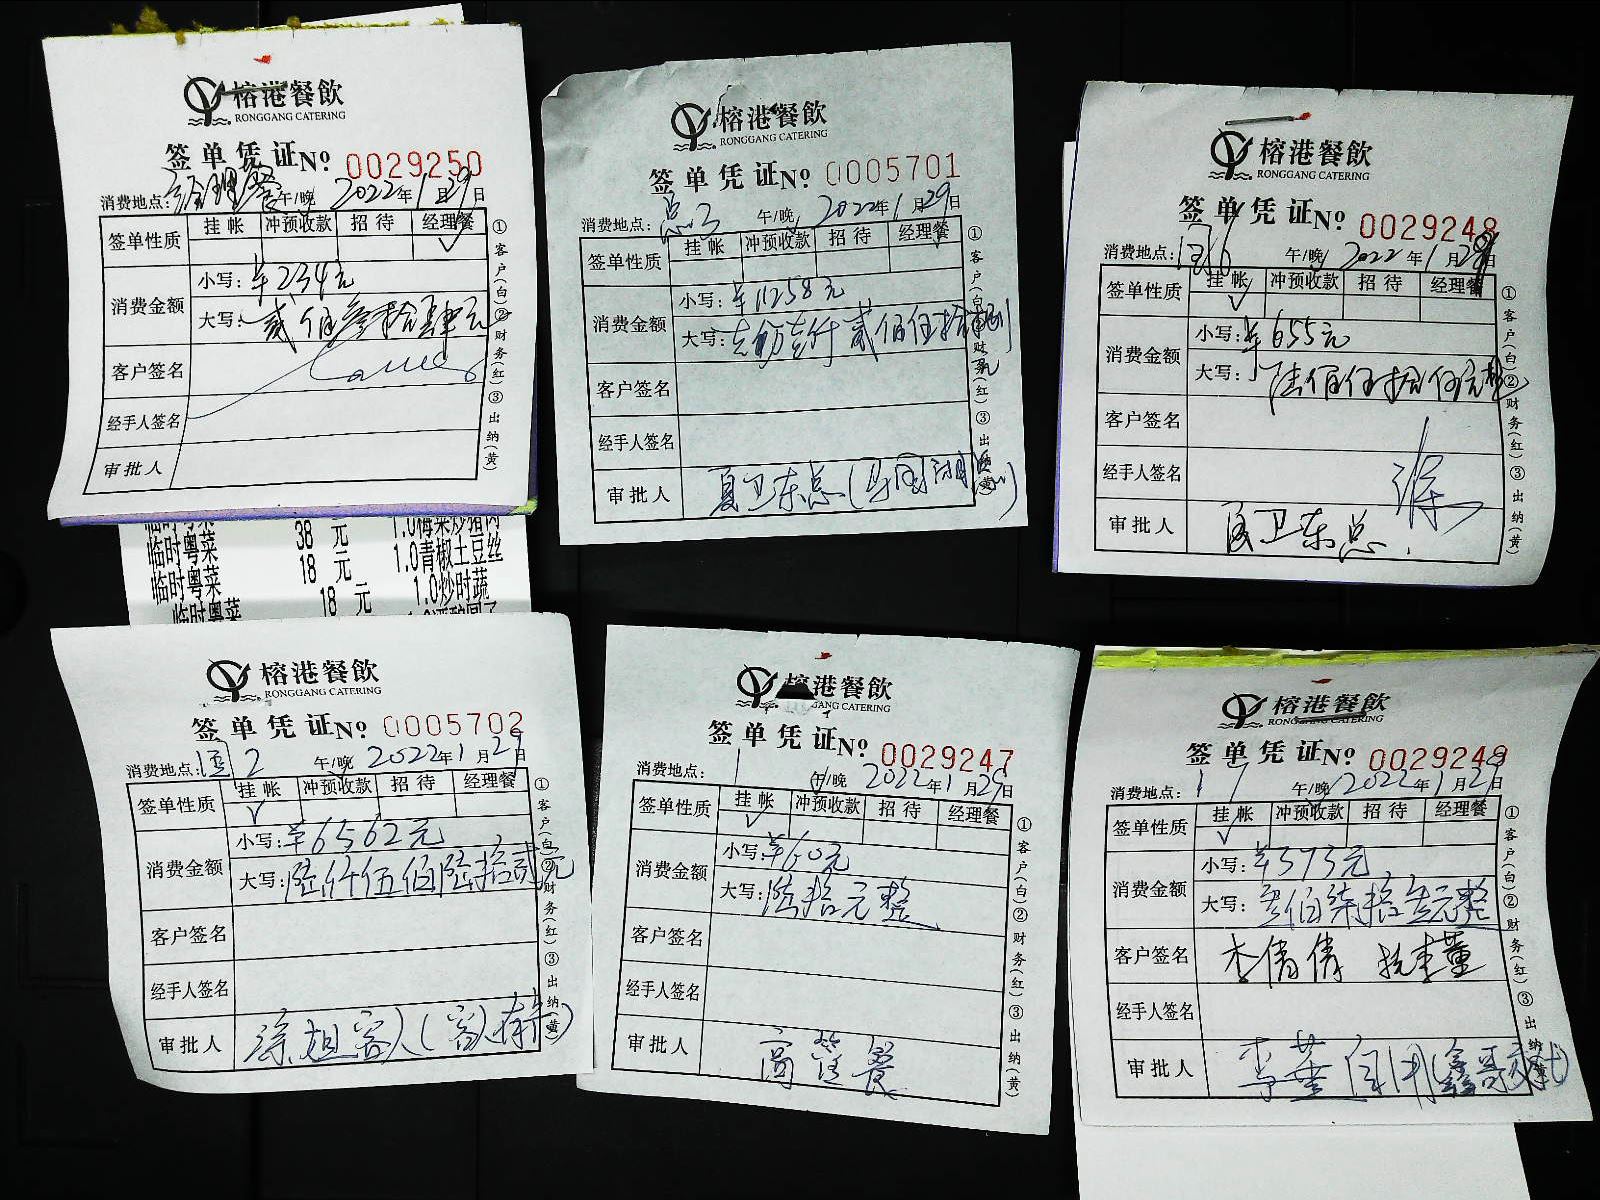 榕港餐飲
RONGGANG CATERING
签单凭证№ 0029250
消费地点: 经理餐 午/晚 2022年1月29日
签单性质 挂帐 冲预收款 招待 经理餐 ✓
消费金额 小写: ¥234元
大写: 贰佰叁拾肆元
客户签名
经手人签名
审批人
①客户(白)②财务(红)③出纳(黄)
临时粤菜 38 元 1.0梅菜炒猪肉
临时粤菜 18 元 1.0青椒土豆丝
临时粤菜 18 元 1.0炒时蔬
临时粤菜
榕港餐飲
RONGGANG CATERING
签单凭证№ 0005701
消费地点: 午/晚 2022年1月29日
签单性质 挂帐 冲预收款 招待 经理餐 ✓
消费金额 小写: ¥11258元
大写: 壹万壹仟贰佰伍拾捌
客户签名
经手人签名
审批人 夏卫东总
①客户(白)②财务(红)③出纳(黄)
榕港餐飲
RONGGANG CATERING
签单凭证№ 0029248
消费地点: 午/晚 2022年1月29日
签单性质 挂帐 ✓ 冲预收款 招待 经理餐
消费金额 小写: ¥655元
大写: 陆佰伍拾伍元整
客户签名
经手人签名
审批人 夏卫东总
①客户(白)②财务(红)③出纳(黄)
榕港餐飲
RONGGANG CATERING
签单凭证№ 0005702
消费地点: 2 午/晚 2022年1月29日
签单性质 挂帐 ✓ 冲预收款 招待 经理餐
消费金额 小写: ¥6562元
大写: 陆仟伍佰陆拾贰元
客户签名
经手人签名
审批人
①客户(白)②财务(红)③出纳(黄)
榕港餐飲
RONGGANG CATERING
签单凭证№ 0029247
消费地点: 1 午/晚 2022年1月29日
签单性质 挂帐 ✓ 冲预收款 招待 经理餐
消费金额 小写: ¥60元
大写: 陆拾元整
客户签名
经手人签名
审批人 高管餐
①客户(白)②财务(红)③出纳(黄)
榕港餐飲
RONGGANG CATERING
签单凭证№ 0029249
消费地点: 17 午/晚 2022年1月29日
签单性质 挂帐 ✓ 冲预收款 招待 经理餐
消费金额 小写: ¥373元
大写: 叁佰柒拾叁元整
客户签名 李倩倩
经手人签名
审批人
①客户(白)②财务(红)③出纳(黄)